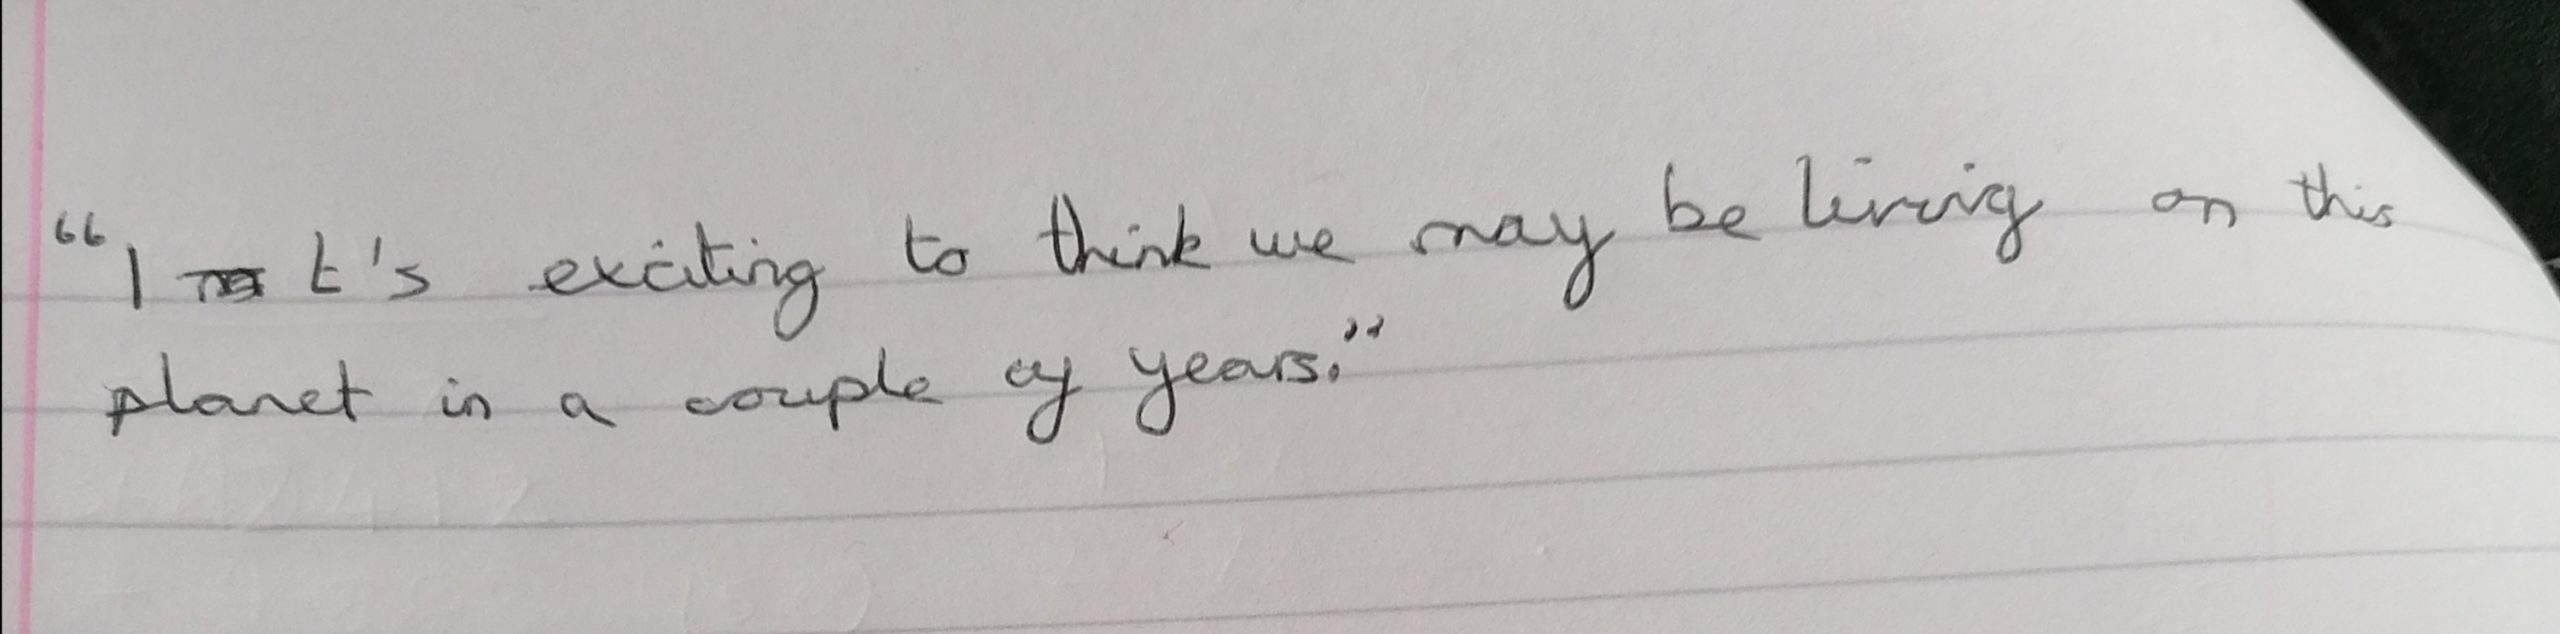 "It's exciting to think we may be living on this
planet in a couple of years."